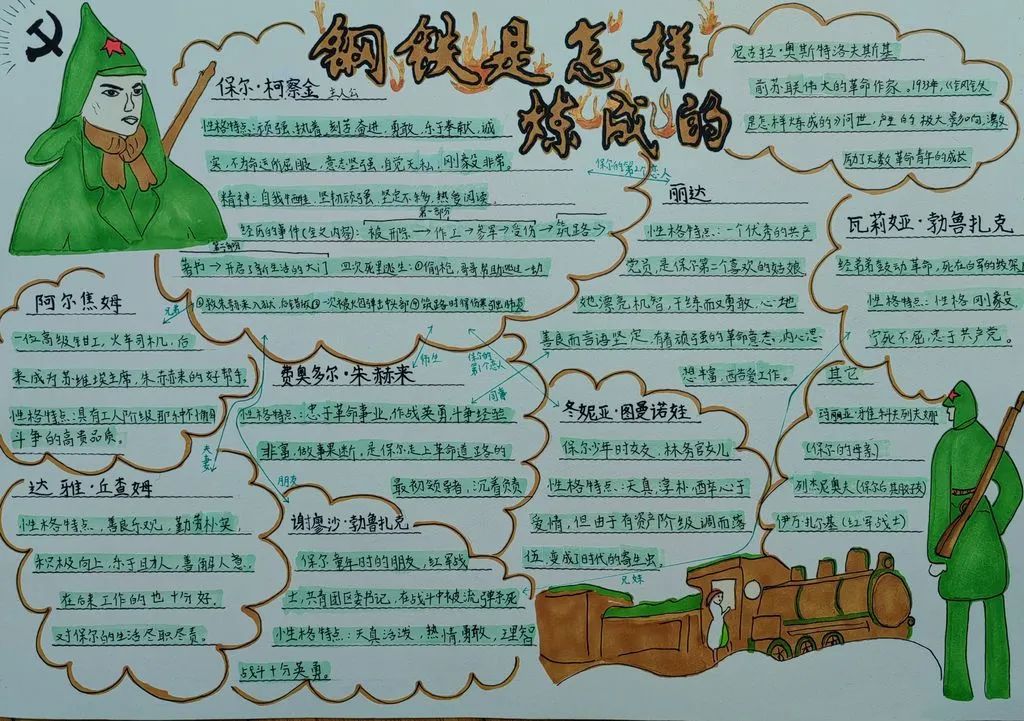 钢铁是怎样
炼成的
保尔·柯察金 主人公
性格特点:顽强、执着、刻苦奋进,勇敢,乐于奉献、诚
实,不为命运所屈服,意志坚强,自觉无私,刚毅非常。
精神:自我牺牲,坚韧顽强,坚定不移,热爱阅读
第一部分
经历的事件(主义内容):被开除→作工→参军→受伤→筑路→
第二部分
著书→开启了新生活的大门 四次死里逃生:①偷枪,哥哥帮助逃过一劫
尼古拉·奥斯特洛夫斯基
前苏联伟大的革命作家。1933年,《钢铁
是怎样炼成的》问世,产生的极大影响,激
励了无数革命青年的成长
保尔的第2个恋人
丽达
性格特点:一个优秀的共产
党员,是保尔第二个喜欢的姑娘
她漂亮机智,干练而又勇敢,心地
善良而言语坚定,有着顽强的革命意志,内心思
想丰富,西告爱工作。
瓦莉娅·勃鲁扎克
性格特点:性格刚毅
宁死不屈,忠于共产党。
阿尔焦姆
兄弟
一位高级钳工,火车司机,后
来成为苏维埃主席,朱赫来的好帮手。
性格特点:具有工人阶级那种不懈
斗争的高贵品质。
师生
保尔的
第1个恋人
同事
费奥多尔·朱赫来
性格特点:忠于革命事业,作战英勇斗争经验
非富,做事果断,是保尔走上革命道路的
最初领导者,沉着
冬妮亚·图曼诺娃
保尔少年时女友,林务官女儿
性格特点:天真、淳朴
爱情,但由于有资产阶级调而落
伍,变成了时代的寄生虫
其它
玛丽亚·雅科夫列夫娜
(保尔的母亲)
伊万·扎尔基(红军战士)
夫妻
朋友
达雅·丘查姆
性格特点:善良乐观,勤劳朴实,
积极向上,乐于助人,善解人意,
在后来工作的也十分好,
对保尔的生活尽职尽责。
谢廖沙·勃鲁扎克
保尔童年时的朋友,红军战
士,共有团区委书记,在战斗中被流弹杀死
性格特点:天真活泼,热情,勇敢,
战斗十分英勇。
兄妹